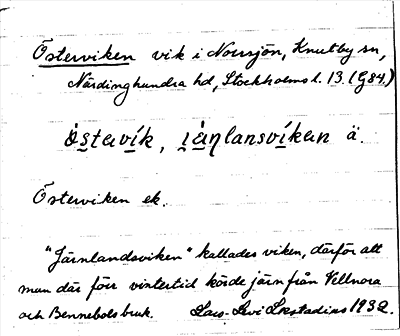 Österviken vik i Norrsjön, Knutby sn,
Närdinghundra hd, Stockholms l. 13. (G84.)
östavík, iàŋlansvíkan ä.
Österviken ek.
"Järnlandsviken" kallades viken, därför att
man där förr vintertid körde järn från Vellnora
och Bennebols bruk. Lars-Levi Læstadius 1932.